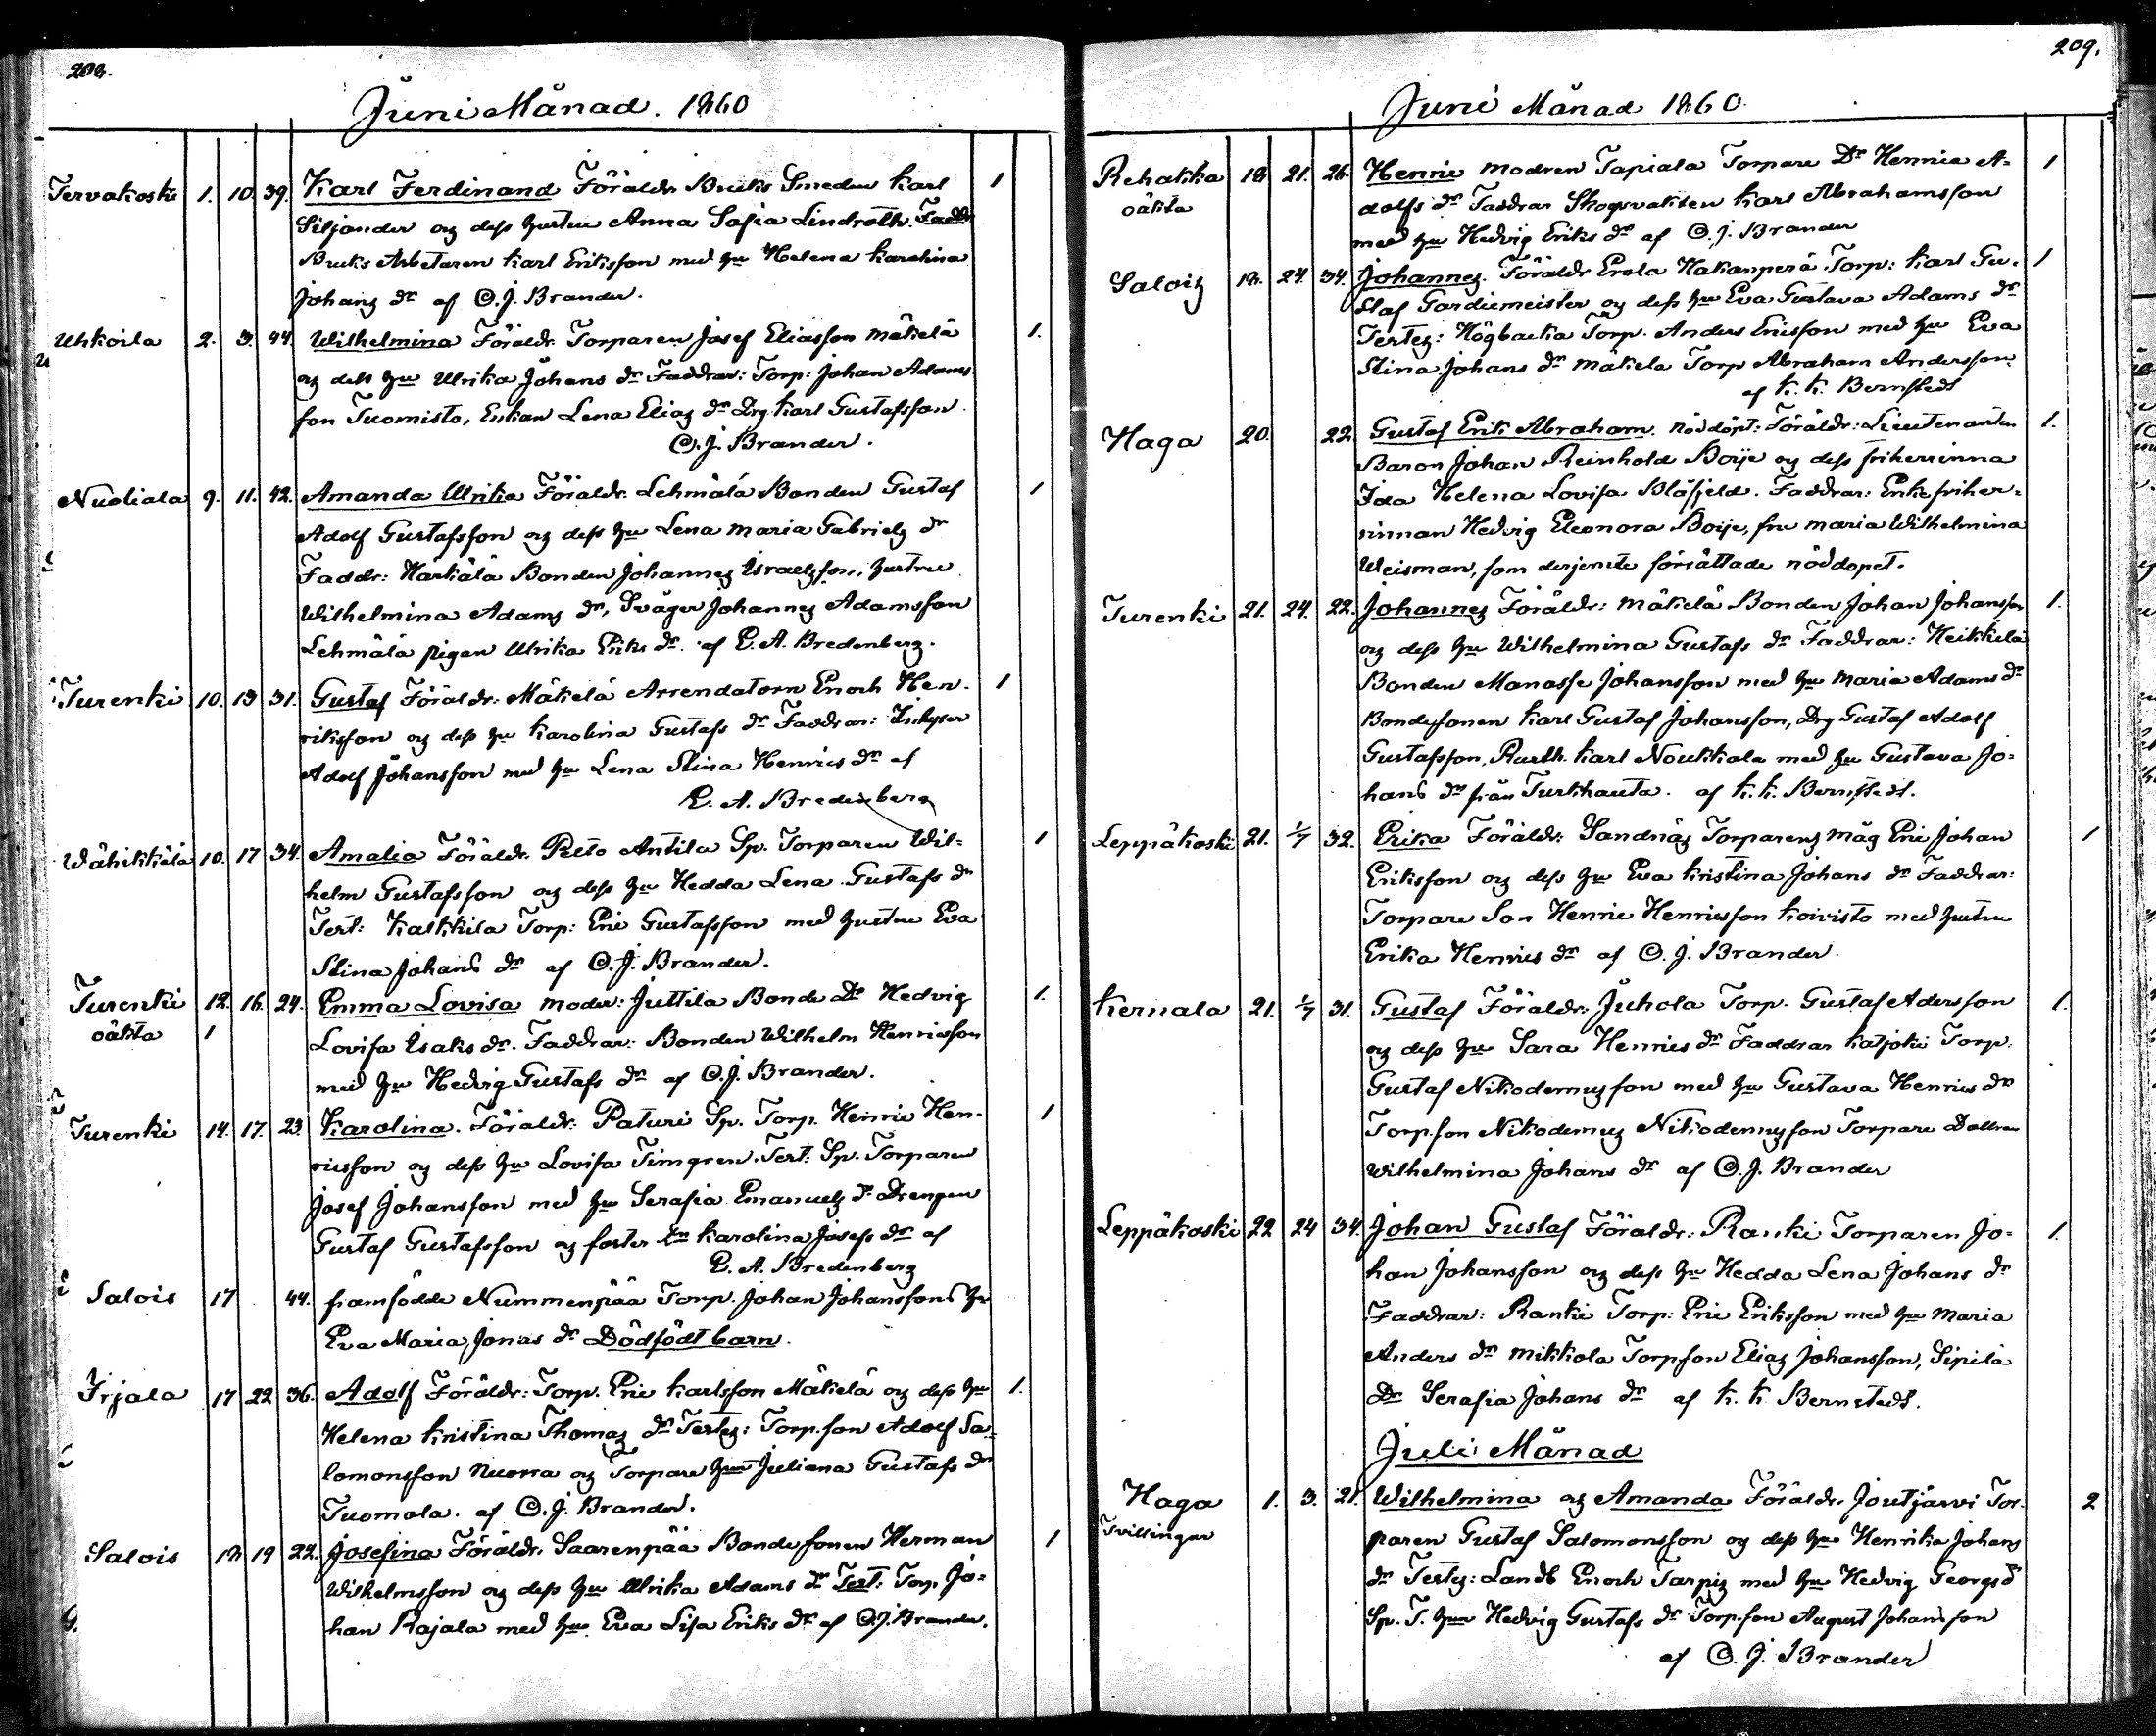 208.
Juni Månad. 1860
Tervakoski 1. 10. 39. Karl Ferdinand Föräldr. Bruks Smeden Karl 1
Siljander og dess hustru Anna Sofia Lindroth. Faddr
Bruks Arbetaren Karl Eriksson med hu Helena Karolina
Johans dr af C. J. Brander.
Uhkoila 2. 3. 44. Wilhelmina Föräldr. Torparen Josef Eliasson Mäkelä 1.
og dess hu Ulrika Johans dr Faddrar: Torp: Johan Adams
son Tuomisto, Enkan Lena Elias dr Drg Karl Gustafsson.
C. J. Brander.
Nuoliala 9. 11. 42. Amanda Ulrika Föräldr. Lehmälä Bonden Gustaf 1
Adolf Gustafsson og dess hu Lena Maria Gabriels dr
Faddr: Härkälä Bonden Johannes Israelsson, hustru
Wilhelmina Adams dr, Svåger Johannes Adamsson
Lehmälä pigan Ulrika Eriks dr. af E. A. Bredenberg.
Turenki 10. 13 31. Gustaf Föräldr: Mäkelä Arrendatorn Enoch Hen- 1
riksson og dess hu Karolina Gustafs dr Faddrar: Inhyser
Adolf Johansson med hu Lena Stina Henrics dr af
E. A. Bredenberg
Wähikkälä 10. 17 34. Amalia Föräldr. Pelto Antila Sp. Torparen Wil= 1
helm Gustafsson og dess hu Hedda Lena Gustafs dr
Test: Kalkkila Torp: Eric Gustafsson med hustru Eva
Stina Johans dr af C. J. Brander.
Turenki 12. 16. 24. Emma Lovisa Moder: Juttila Bonde Dr Hedvig 1.
oäkta 1 Lovisa Isaks dr. Faddrar: Bonden Wilhelm Henricsson
med hu Hedvig Gustafs dr af C. J. Brander.
Turenki 14. 17. 23. Karolina. Föräldr: Paturi Sp. Torp. Henric Hen- 1
ricsson og dess hu Lovisa Timgren. Test: Sp. Torparen
Josef Johansson med hu Serafia Emanuels dr Drengen
Gustaf Gustafsson og foster dr Karolina Josefs dr af
E. A. Bredenberg
Salois 17 44. framfödde Nummenpää Torp. Johan Johanssons hu
Eva Maria Jonas dr Dödfödt barn.
Irjala 17 22 36. Adolf Föräldr: Torp. Eric Karlsson Mäkelä og dess hu 1.
Helena Kristina Thomas dr Testes: Torp.son Adolf Sa=
lomonsson Nuorra og Torpare hun Juliana Gustafs dr
Tuomola. af C. J. Brander.
Salois 18 19 22. Josefina Föräldr. Saarenpää Bondesonen Herman 1
Wilhelmsson og dess hu Ulrika Adams dr Test: Torp. Jo=
han Rajala med hu Eva Lisa Eriks dr af C. J. Brander.
209.
Juni Månad 1860.
Rehakka 18 21. 26. Henric modren Tapiala Torpare Dr Hennia A= 1
oäkta dolfs dr Faddrar Skogsvakten Karl Abrahamsson
med hu Hedvig Eriks dr af C. J. Brander
Salois 18. 24. 34. Johannes. Föräldr Erola Hakanperä Torp: Karl Gu= 1
staf Gardiemeister og dess hu Eva Gustava Adams dr
Testes: Högbacka Torp. Anders Ericsson med hu Eva
Stina Johans dr Mäkela Torp Abraham Andersson.
af K. K. Bernstedt
Haga 20. 22. Gustaf Erik Abraham. nöddöpt: Föräldr: Lieutenanten 1.
Baron Johan Reinhold Boije og dess friherrinna
Ida Helena Lovisa Blåfjeld. Faddrar: Enkefriher=
rinnan Hedvig Eleonora Boije, fru Maria Wilhelmina
Weisman, som derjemte förrättade nöddopet.
Turenki 21. 24. 22. Johannes Föräldr: Mäkelä Bonden Johan Johansson 1.
og dess hu Wilhelmina Gustafs dr Faddrar: Heikkilä
Bonden Manasse Johansson med hu Maria Adams dr
Bondesonen Karl Gustaf Johansson, Drg Gustaf Adolf
Gustafsson, Rusth. Karl Noukkala med hu Gustava Jo=
hans dr från Turkhauta. af K. K. Bernstedt.
Leppäkoski 21. 1/7 32. Erika Föräldr: Sandnäs Torparens Måg Eric Johan 1
Eriksson og dess hu Eva Kristina Johans dr Faddrar:
Torpare Son Henric Henricsson Koivisto med hustru
Erika Henrics dr af C. J. Brander.
Kernala 21. 1/7 31. Gustaf Föräldr: Juhola Torp. Gustaf Adersson 1.
og dess hu Sara Henrics dr Faddrar Katjoki Torp.
Gustaf Nikodemusson med hu Gustava Henrics dr
Torp.son Nikodemus Nikodemusson Torpare Dottren
Wilhelmina Johans dr af C. J. Brander
Leppäkoski 22 24 34. Johan Gustaf Föräldr: Ranki Torparen Jo= 1.
han Johansson og dess hu Hedda Lena Johans dr
Faddrar: Ranki Torp: Eric Eriksson med hu Maria
Anders dr Mikkola Torpson Elias Johansson, Sipilä
Dr Serafia Johans dr af K. K. Bernstedt.
Juli Månad
Haga 1. 3. 21. Wilhelmina og Amanda Föräldr. Joutjärvi Tor= 2
Tvillingar paren Gustaf Salomonsson og dess hu Henrika Johans
dr Testes: Landb Enoch Tarpis med hu Hedvig Georgs dr
Sp. T. hun Hedvig Gustafs dr Torp.son August Johansson
af C. J. Brander